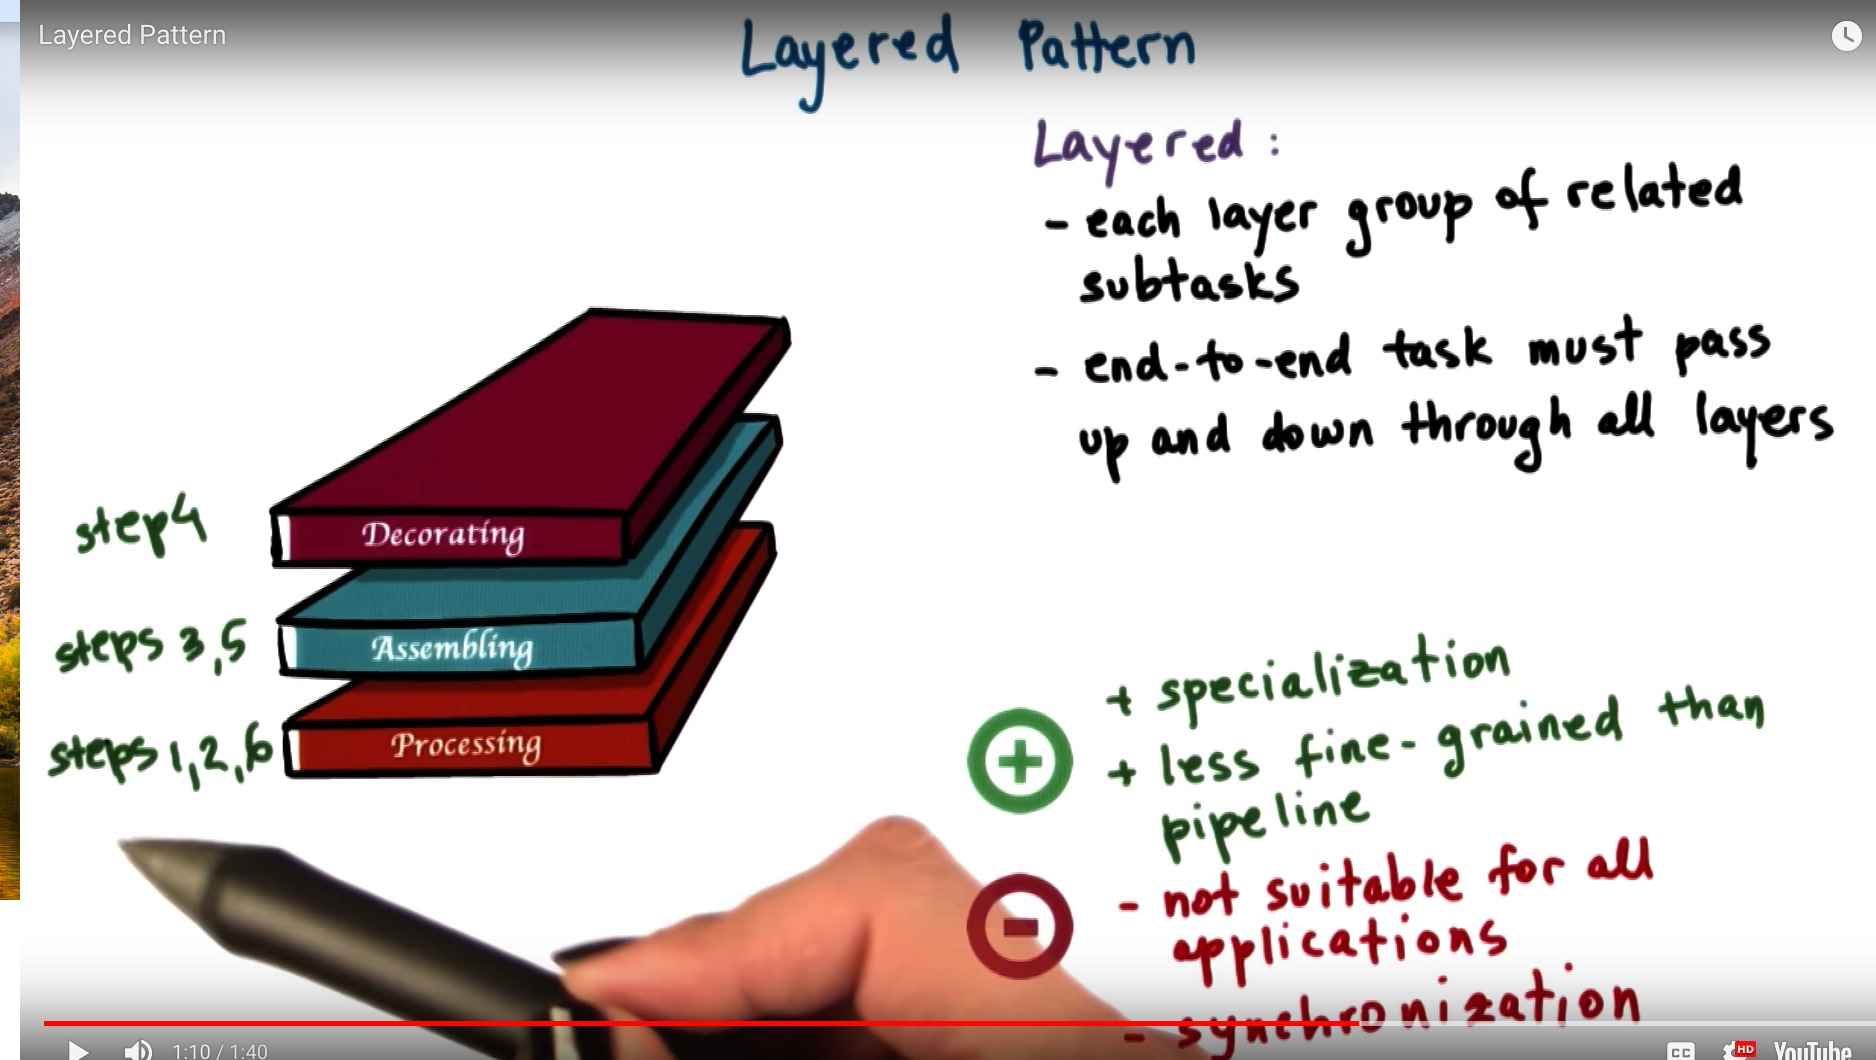 Layered Pattern
Layered Pattern
Layered:
- each layer group of related
subtasks
- end-to-end task must pass
up and down through all layers
step4
Decorating
steps 3,5
Assembling
steps 1,2,6
Processing
+ specialization
+ less fine-grained than
pipeline
- not suitable for all
applications
- synchronization
1:10 / 1:40
CC
HD
YouTube